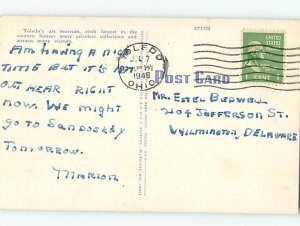 Toledo's art museum, sixth largest in the
country, houses many priceless collections and
attracts many visitors.
Am having a nice
time but it's hot
out hear right
now. We might
go to Sandoskey
tomorrow.
Marion
TOLEDO
JUL 7
1948
OHIO
POST CARD
UNITED STATES
1 CENT
Mr. Estel Bedwell
204 Jefferson St.
Wilmington, Delaware